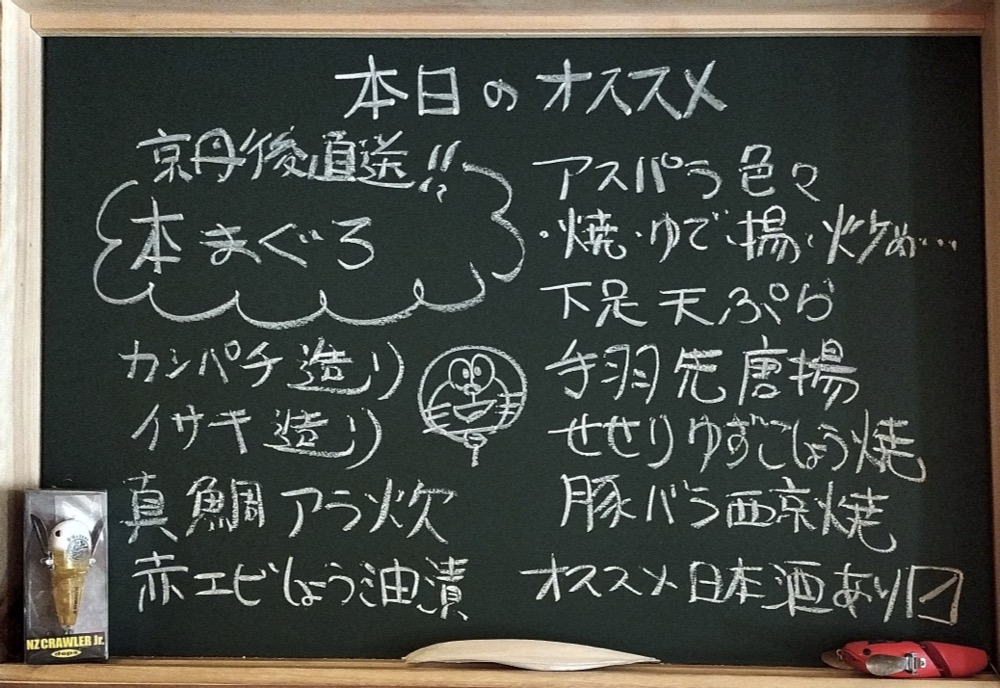 本日のオススメ
京丹後直送!!
本まぐろ
カンパチ造り
イサキ造り
真鯛アラ炊
赤エビしょう油漬
アスパラ色々
・焼・ゆで・揚・炒め…
下足天ぷら
手羽先唐揚
せせりゆずこしょう焼
豚バラ西京焼
オススメ日本酒あり〼
NZ CRAWLER Jr.
deps